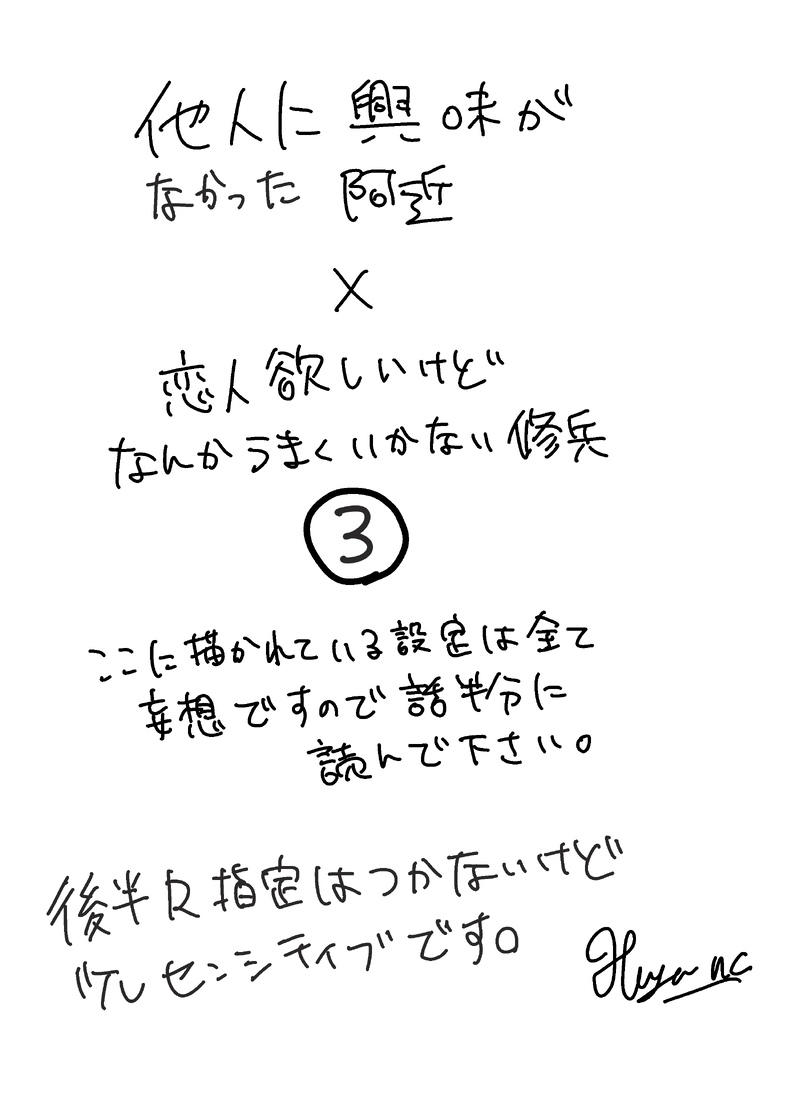 他人に興味が
なかった阿近
×
恋人欲しいけど
なんかうまくいかない修兵
3
ここに描かれている設定は全て
妄想ですので話半分に
読んで下さい。
後半R指定はつかないけど
センシティブです。